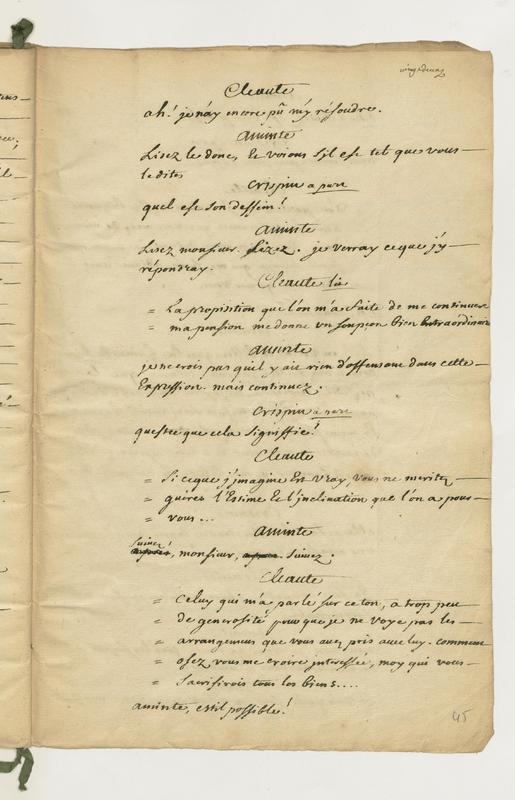 vingt deux
Cleante
ah! je n'ay encore pû m'y résoudre.
Aminte
Lisez le donc, Et voions s'il est tel que vous
le dites
Crispin a part
quel est son dessein!
Aminte
Lisez monsieur Lizez. je verray ceque j'y
répondray.
Cleante lit
= La proposition que l'on m'a faite de me continuer
= ma pension me donne un soupçon bien Extraordinaire
Aminte
je ne crois pas quil y ait rien d'offensant dans cette
Expression. mais continuez.
Crispin a part
quest ce que cela signiffie!
Cleante
= Si ceque j'jmagine Est vray, vous ne meritez
= gueres l'Estime Et l'jnclination que l'on a pour
= vous...
Aminte
suivez
, monsieur, suivez.
Cleante
= Celuy qui m'a parlé sur ce ton, a trop peu
= de generosité pour que je ne voye pas les
= arrangemens que vous avez pris avec luy. comment
= osez vous me croire jnteressée, moy qui vous
= sacrifirois tous les biens....
aminte, est il possible!
45